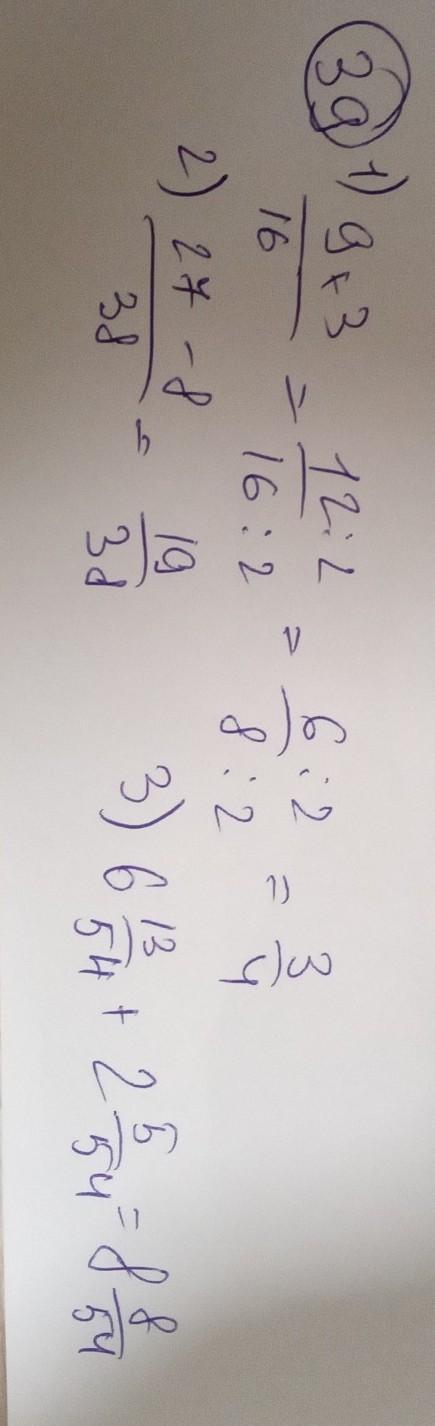 39 1) 9+3/16 = 12:2/16:2 = 6:2/8:2 = 3/4
2) 27-8/38 = 19/38
3) 6 13/54 + 2 5/54 = 8 8/54